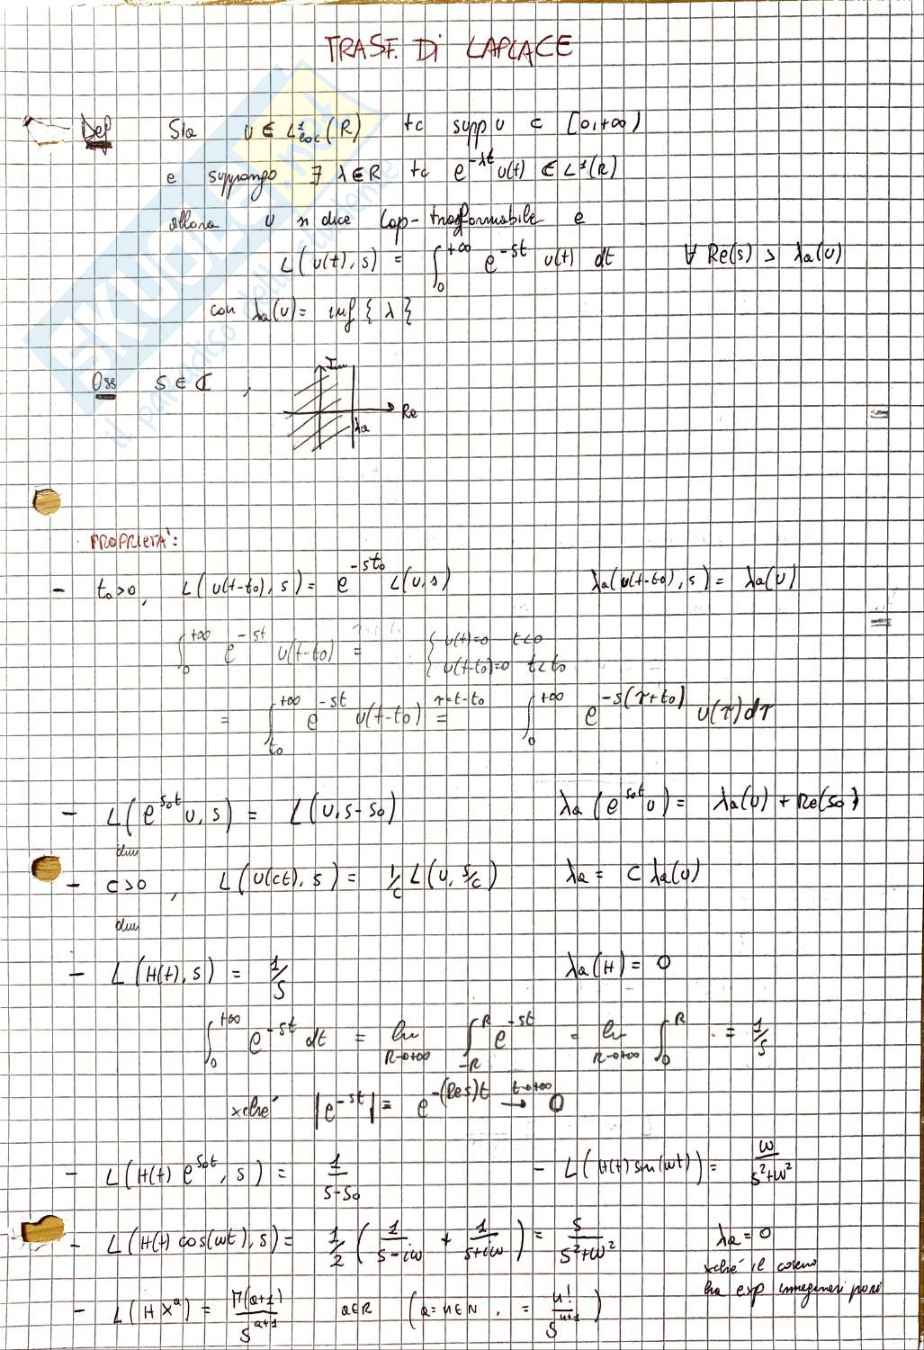 TRASF. DI LAPLACE
Def Sia u ∈ L¹loc(R) tc supp u ⊂ [0,+∞)
e suppongo ∃ λ∈R tc e^{-λt} u(t) ∈ L¹(R)
allora u si dice Lap-trasformabile e
L(u(t), s) = ∫_0^{+∞} e^{-st} u(t) dt ∀ Re(s) > λa(u)
con λa(u) = inf { λ }
Oss s ∈ ℂ ,
Im
Re
λa
PROPRIETA':
- t₀>0, L(u(t-t₀), s) = e^{-st₀} L(u,s) λa(u(t-t₀), s) = λa(u)
∫_0^{+∞} e^{-st} u(t-t₀) = { u(t)=0 t<0
u(t-t₀)=0 t<t₀
= ∫_{t₀}^{+∞} e^{-st} u(t-t₀) =^{τ=t-t₀} ∫_0^{+∞} e^{-s(τ+t₀)} u(τ)dτ
- L(e^{s₀t} u, s) = L(u, s-s₀) λa(e^{s₀t} u) = λa(u) + Re(s₀)
dim
- c>0, L(u(ct), s) = 1/c L(u, s/c) λa = c λa(u)
dim
- L(H(t), s) = 1/s λa(H) = 0
∫_0^{+∞} e^{-st} dt = lim_{R→+∞} ∫_{-R}^{R} e^{-st} = lim_{R→+∞} ∫_0^{R} · = 1/s
xché |e^{-st}| = e^{-(Re s)t} →^{t→+∞} 0
- L(H(t) e^{s₀t}, s) = 1/(s-s₀) - L(H(t) sin(ωt)) = ω/(s²+ω²)
- L(H(t) cos(ωt), s) = 1/2 ( 1/(s-iω) + 1/(s+iω) ) = s/(s²+ω²) λa = 0
xché il coseno
ha exp immaginari puri
- L(H x^a) = Γ(a+1)/s^{a+1} a∈R (a=n∈N, = n!/s^{n+1})